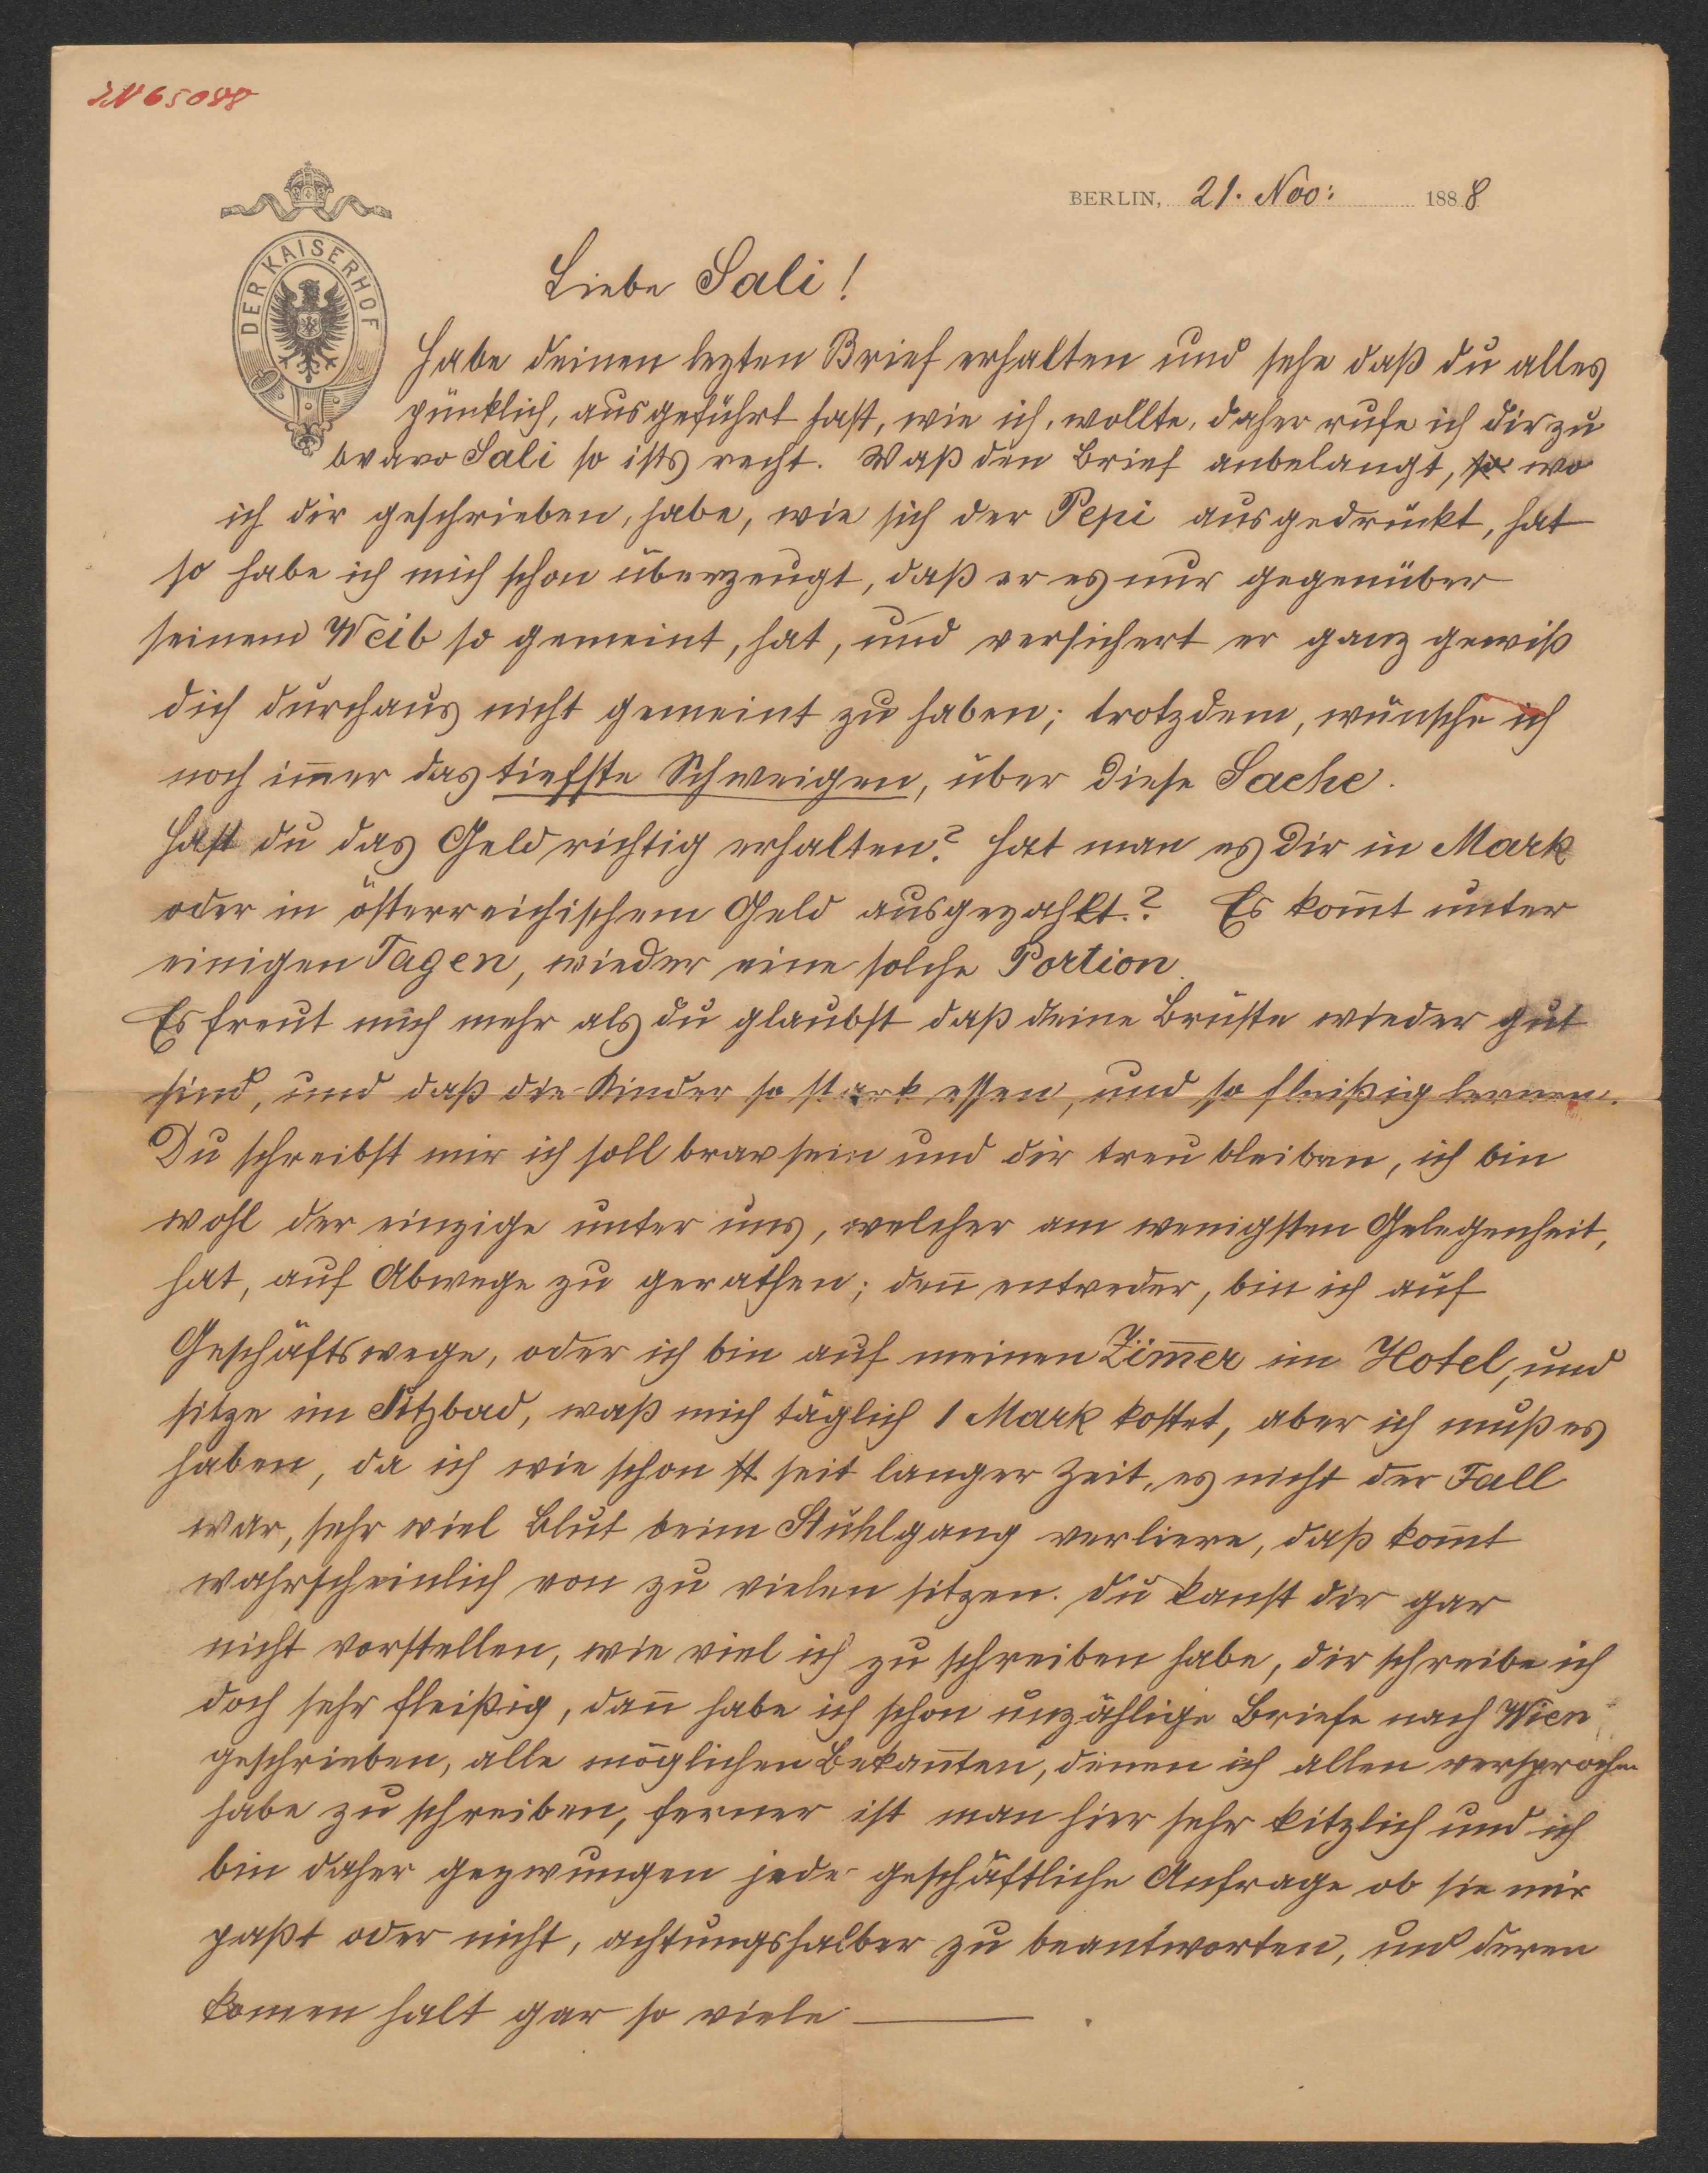 IN 65088
BERLIN, 21. Nov: 1888
DER KAISERHOF
Liebe Sali!
Habe deinen lezten Brief erhalten und sehe daß du alles
pünklich, ausgeführt hast, wie ich, wollte, daher rufe ich dir zu
bravo Sali so ists recht. Waß den Brief anbelangt, so wo
ich dir geschrieben, habe, wie sich der Pepi ausgedrückt, hat
so habe ich mich schon überzeugt, daß er es nur gegenüber
seinem Weib so gemeint, hat, und versichert er ganz gewiß
dich durchaus nicht gemeint zu haben; trotzdem, wünsche ich
noch im̄er das tiefste Schweigen, über diese Sache.
Hast du das Geld richtig erhalten? hat man es dir in Mark
oder in österreichischem Geld ausgezahlt? Es kom̄t unter
einigen Tagen, wieder eine solche Portion.
Es freut mich mehr als du glaubst daß deine Brüste wieder gut
sind, und daß die Kinder so stark essen, und so fleißig lernen.
Du schreibst mir ich soll brav sein und dir treu bleiben, ich bin
wohl der einzige unter uns, welcher am wenigsten Gelegenheit,
hat, auf Abwege zu gerathen; den̄ entweder, bin ich auf
Geschäftswege, oder ich bin auf meinen Zim̄er im Hotel, und
sitze im Sitzbad, waß mich täglich 1 Mark kostet, aber ich muß es
haben, da ich wie schon st seit langer Zeit, es nicht der Fall
war, sehr viel Blut beim Stuhlgang verliere, daß kom̄t
wahrscheinlich von zu vielen sitzen. Du kanst dir gar
nicht vorstellen, wie viel ich zu schreiben habe, dir schreibe ich
doch sehr fleißig, dan̄ habe ich schon unzählige Briefe nach Wien
geschrieben, alle möglichen Bekan̄ten, denen ich allen versprochen
habe zu schreiben, ferner ist man hier sehr kitzlich und ich
bin daher gezwungen jede geschäftliche Anfrage ob sie mir
paßt oder nicht, achtungshalber zu beantworten, und deren
komen halt gar so viele